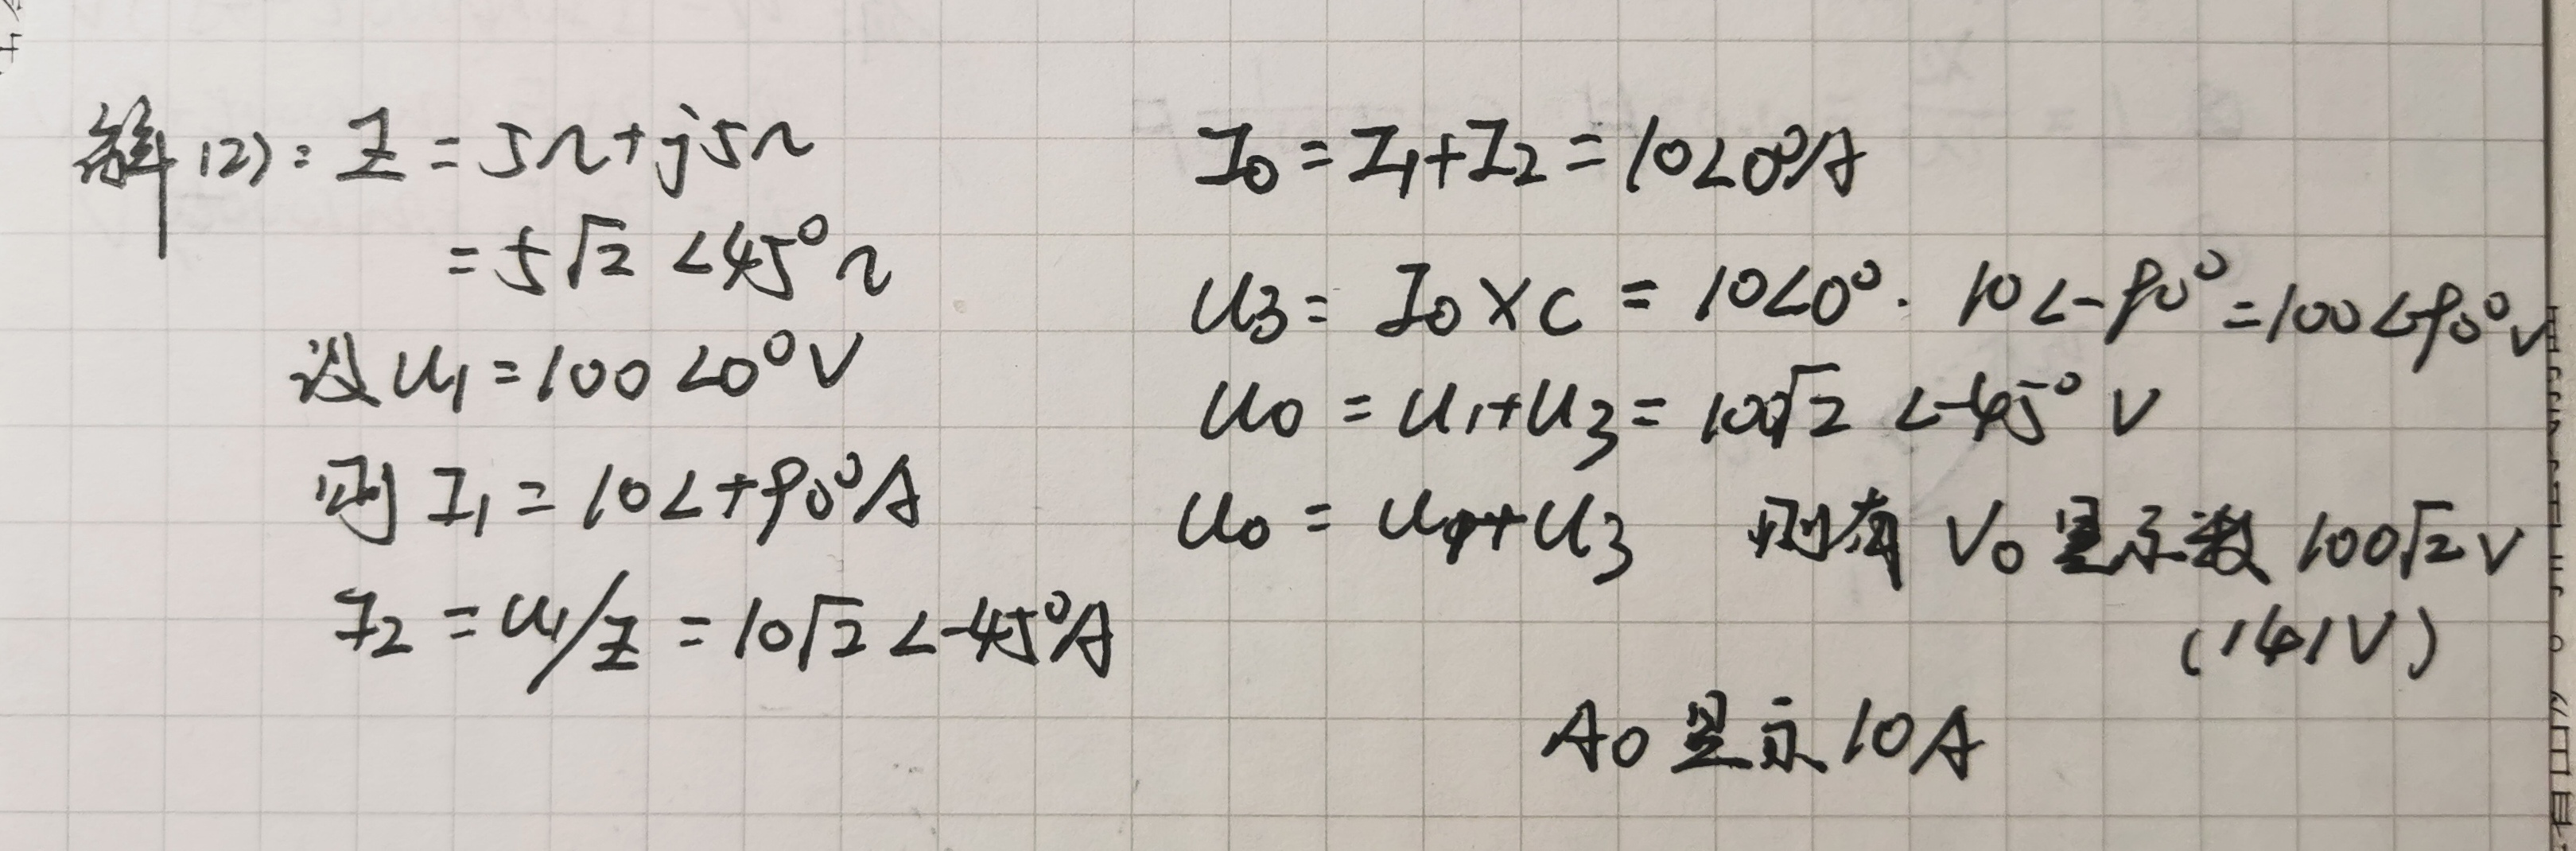 解(2): Z = 5Ω+j5Ω
= 5√2 ∠45°Ω
设U₁=100∠0°V
则 I₁ = 10∠+90°A
I₂ = U₁/Z = 10√2∠-45°A
I₀ = I₁+I₂ = 10∠0°A
U₃ = I₀ Xc = 10∠0°· 10∠-90° = 100∠-90°V
U₀ = U₁+U₃ = 100√2 ∠-45° V
U₀ = U₁+U₃ 则有 V₀显示数 100√2V
(141V)
A₀显示10A